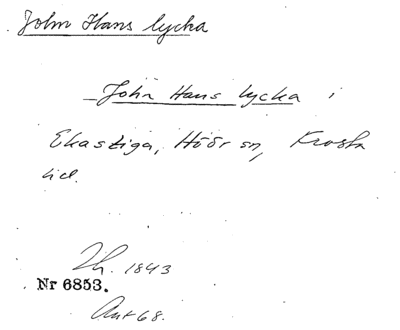 John Hans lycka
John Hans lycka i
Ekastiga, Höör sn, Frosta
hd.
Th. 1843
Nr 6853.
Ant 68.